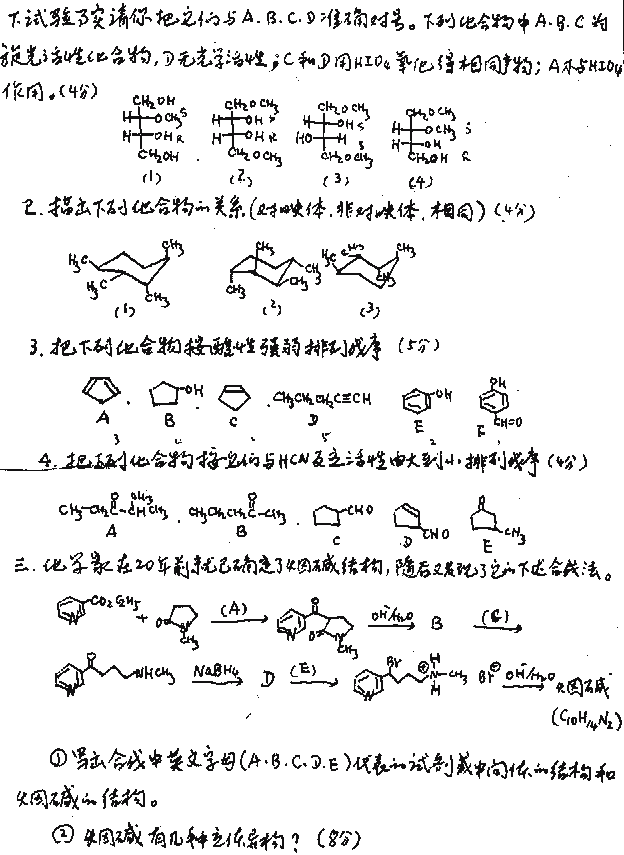 下试验事实请你把它们与A.B.C.D准确对号。下列化合物中A.B.C为
旋光活性化合物,D无光学活性;C和D用HIO4氧化得相同产物;A不与HIO4
作用。(4分)
CH2OH CH2OCH3 CH2OCH3 CH2OCH3
H OCH3 S H OH S H OH S H OCH3 S
H OH R H OH R HO H S H OH
CH2OH CH2OCH3 CH2OCH3 CH2OH R
(1) (2) (3) (4)
2.指出下列化合物的关系(对映体.非对映体.相同)(4分)
H3C CH3 H3C CH3 CH3 CH3 CH3 CH3 H3C CH3 CH3
(1) (2) (3)
3.把下列化合物按酸性强弱排列成序(5分)
OH CH3CH2CH2C≡CH OH OH CH=O
A B C D E F
4.把下列化合物按它们与HCN反应活性由大到小排列成序(4分)
CH3-CH2-C-CHCH3 CH3 O CH3CH2CH2C-CH3 O CHO CHO O CH3
A B C D E
三.化学家在20年前就已确定了烟碱结构,随后又发现了它的下述合成法。
CO2C2H5 + O N CH3 (A) O N O N CH3 OH-/H2O B (C)
O NHCH3 N NaBH4 D (E) Br N ⊕N CH3 H H Br⊖ OH-/H2O 烟碱
(C10H14N2)
①写出合成中英文字母(A.B.C.D.E)代表的试剂或中间体的结构和
烟碱的结构。
②烟碱有几种立体异构?(8分)